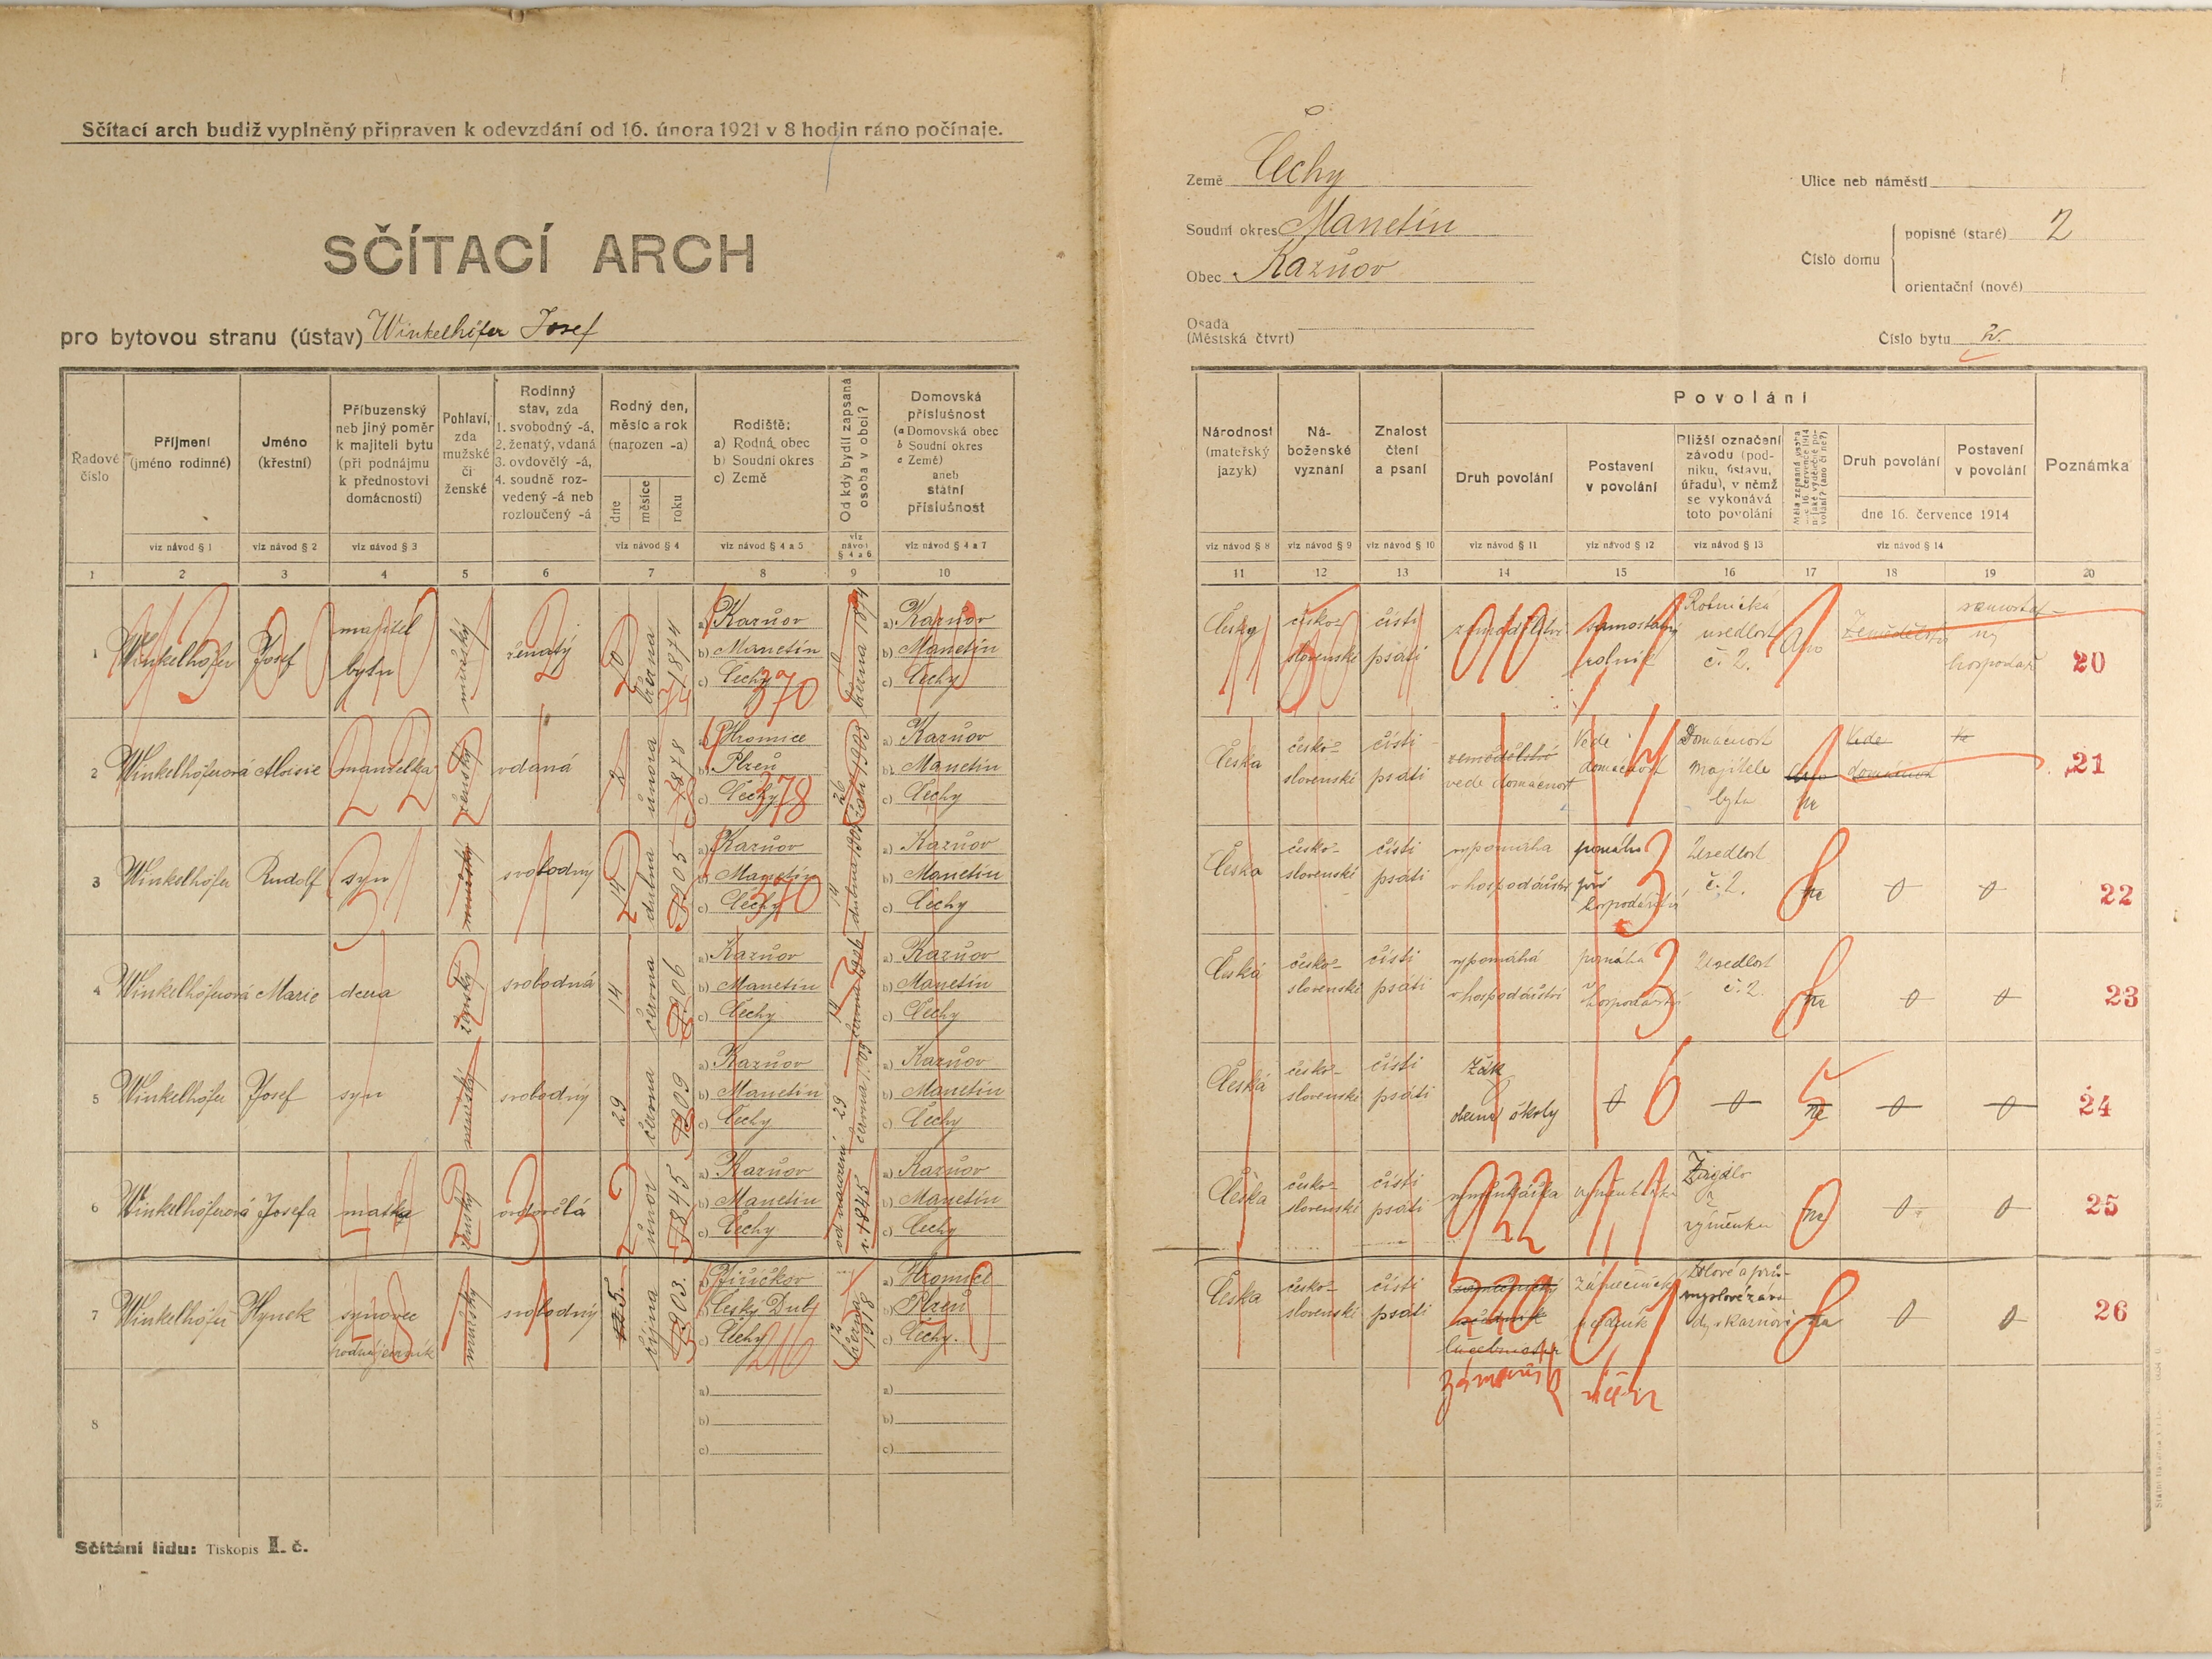 Sčítací arch budiž vyplněný připraven k odevzdání od 16. února 1921 v 8 hodin ráno počínaje.
SČÍTACÍ ARCH
pro bytovou stranu (ústav) Winkelhöfer Josef
Země Čechy
Soudní okres Manetín
Obec Kaznov
Osada
(Městská čtvrt)
Ulice neb náměstí
Číslo domu
popisné (staré) 2
orientační (nové)
Číslo bytu
Řadové číslo
Příjmení (jméno rodinné)
Jméno (křestní)
Příbuzenský neb jiný poměr k majiteli bytu (při podnájmu k přednostovi domácnosti)
Pohlaví, zda mužské či ženské
Rodinný stav, zda 1. svobodný -á, 2. ženatý, vdaná 3. ovdovělý -á, 4. soudně rozvedený -á neb rozloučený -á
Rodný den, měsíc a rok (narozen -a)
dne měsíce roku
Rodiště: a) Rodná obec b) Soudní okres c) Země
Od kdy bydlí zapsaná osoba v obci?
Domovská příslušnost (a Domovská obec b Soudní okres c Země) aneb státní příslušnost
viz návod § 1
viz návod § 2
viz návod § 3
viz návod § 4
viz návod § 4 a 5
viz návod § 4 a 6
viz návod § 4 a 7
1 2 3 4 5 6 7 8 9 10
Národnost (mateřský jazyk)
Náboženské vyznání
Znalost čtení a psaní
Povolání
Druh povolání
Postavení v povolání
Bližší označení závodu (podniku, ústavu, úřadu), v němž se vykonává toto povolání
Druh povolání
Postavení v povolání
dne 16. července 1914
Poznámka
viz návod § 8
viz návod § 9
viz návod § 10
viz návod § 11
viz návod § 12
viz návod § 13
viz návod § 14
11 12 13 14 15 16 17 18 19 20
1 Winkelhöfer Josef majitel bytu mužský ženatý 20 března 1874
a) Kaznov
b) Manetín
c) Čechy
370
a) Kaznov
b) Manetín
c) Čechy
česko-slovenské čísti psáti zemědělství samostatný rolník Rolnická usedlost č. 2. Ano zemědělství samostatný hospodář 20
2 Winkelhöferová Aloisie manželka ženský vdaná 2 února 1878
a) Hromice
b) Plzeň
c) Čechy
378
a) Kaznov
b) Manetín
c) Čechy
Česka česko-slovenské čísti psáti zemědělství vede domácnost Vede domácnost Domácnost majitele bytu ne Vede domácnost 21
3 Winkelhöfer Rudolf syn mužský svobodný 24 dubna 1905
a) Kaznov
b) Manetín
c) Čechy
370
a) Kaznov
b) Manetín
c) Čechy
Česka česko-slovenské čísti psáti vypomáhá v hospodářství pomáhá při hospodářství Usedlost č. 2. ne 0 0 22
4 Winkelhöferová Marie dcera ženský svobodná 14 června 1906
a) Kaznov
b) Manetín
c) Čechy
a) Kaznov
b) Manetín
c) Čechy
Česká česko-slovenské čísti psáti vypomáhá v hospodářství pomáhá v hospodářství Usedlost č. 2. ne 0 0 23
5 Winkelhöfer Josef syn mužský svobodný 29 června 1909
a) Kaznov
b) Manetín
c) Čechy
a) Kaznov
b) Manetín
c) Čechy
Česká česko-slovenské čísti psáti žák obecné školy 0 0 ne 0 0 24
6 Winkelhöferová Josefa matka ženský ovdovělá 2 únor 1845
a) Kaznov
b) Manetín
c) Čechy
od narození r. 1845
a) Kaznov
b) Manetín
c) Čechy
Česka česko-slovenské čísti psáti výměnkářka ne 0 0 25
7 Winkelhöfer Hynek synovec mužský svobodný 5. října 1903.
a) Jiříčkov
b) Český Dub
c) Čechy
210
a) Hromice
b) Plzeň
c) Čechy.
Česka česko-slovenské čísti psáti 0 0 26
8
a)
b)
c)
a)
b)
c)
Sčítání lidu: Tiskopis II. č.